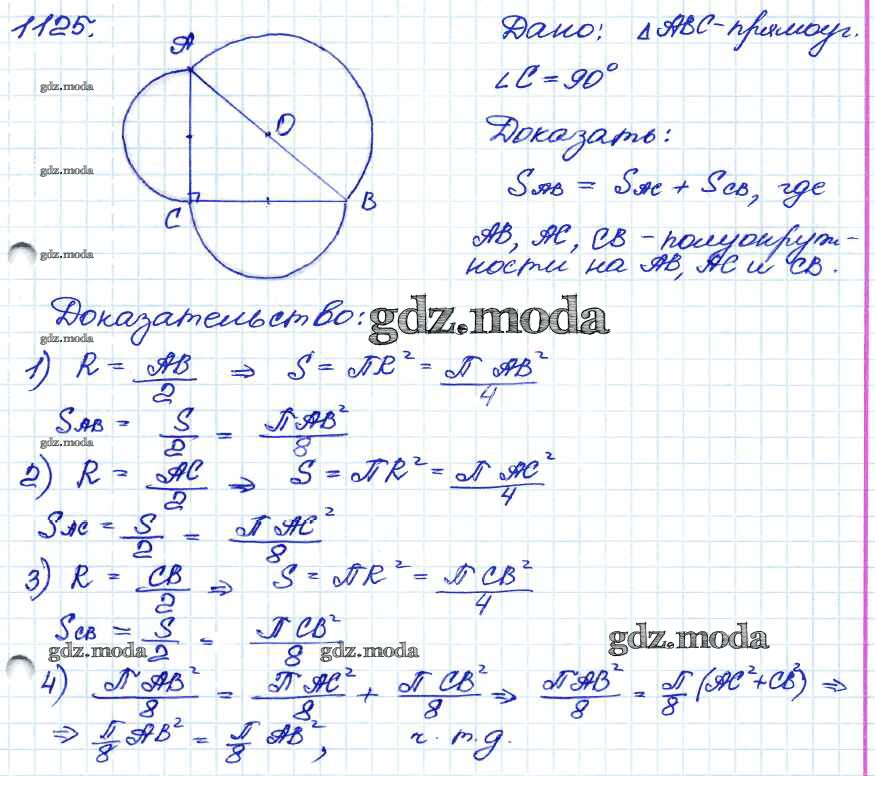 1125.
Дано: △ABC - прямоуг.
∠C = 90°
Доказать:
S_AB = S_AC + S_CB, где
AB, AC, CB - полуокруж-
ности на AB, AC и CB.
A
O
B
C
gdz.moda
gdz.moda
gdz.moda
Доказательство:
gdz.moda
gdz.moda
1) R = AB/2 ⇒ S = ПR² = П AB²/4
S_AB = S/2 = П AB²/8
gdz.moda
2) R = AC/2 ⇒ S = ПR² = П AC²/4
S_AC = S/2 = П AC²/8
3) R = CB/2 ⇒ S = ПR² = П CB²/4
S_CB = S/2 = П CB²/8
gdz.moda
gdz.moda
gdz.moda
4) П AB²/8 = П AC²/8 + П CB²/8 ⇒ П AB²/8 = П/8 (AC² + CB²) ⇒
⇒ П/8 AB² = П/8 AB², ч.т.д.